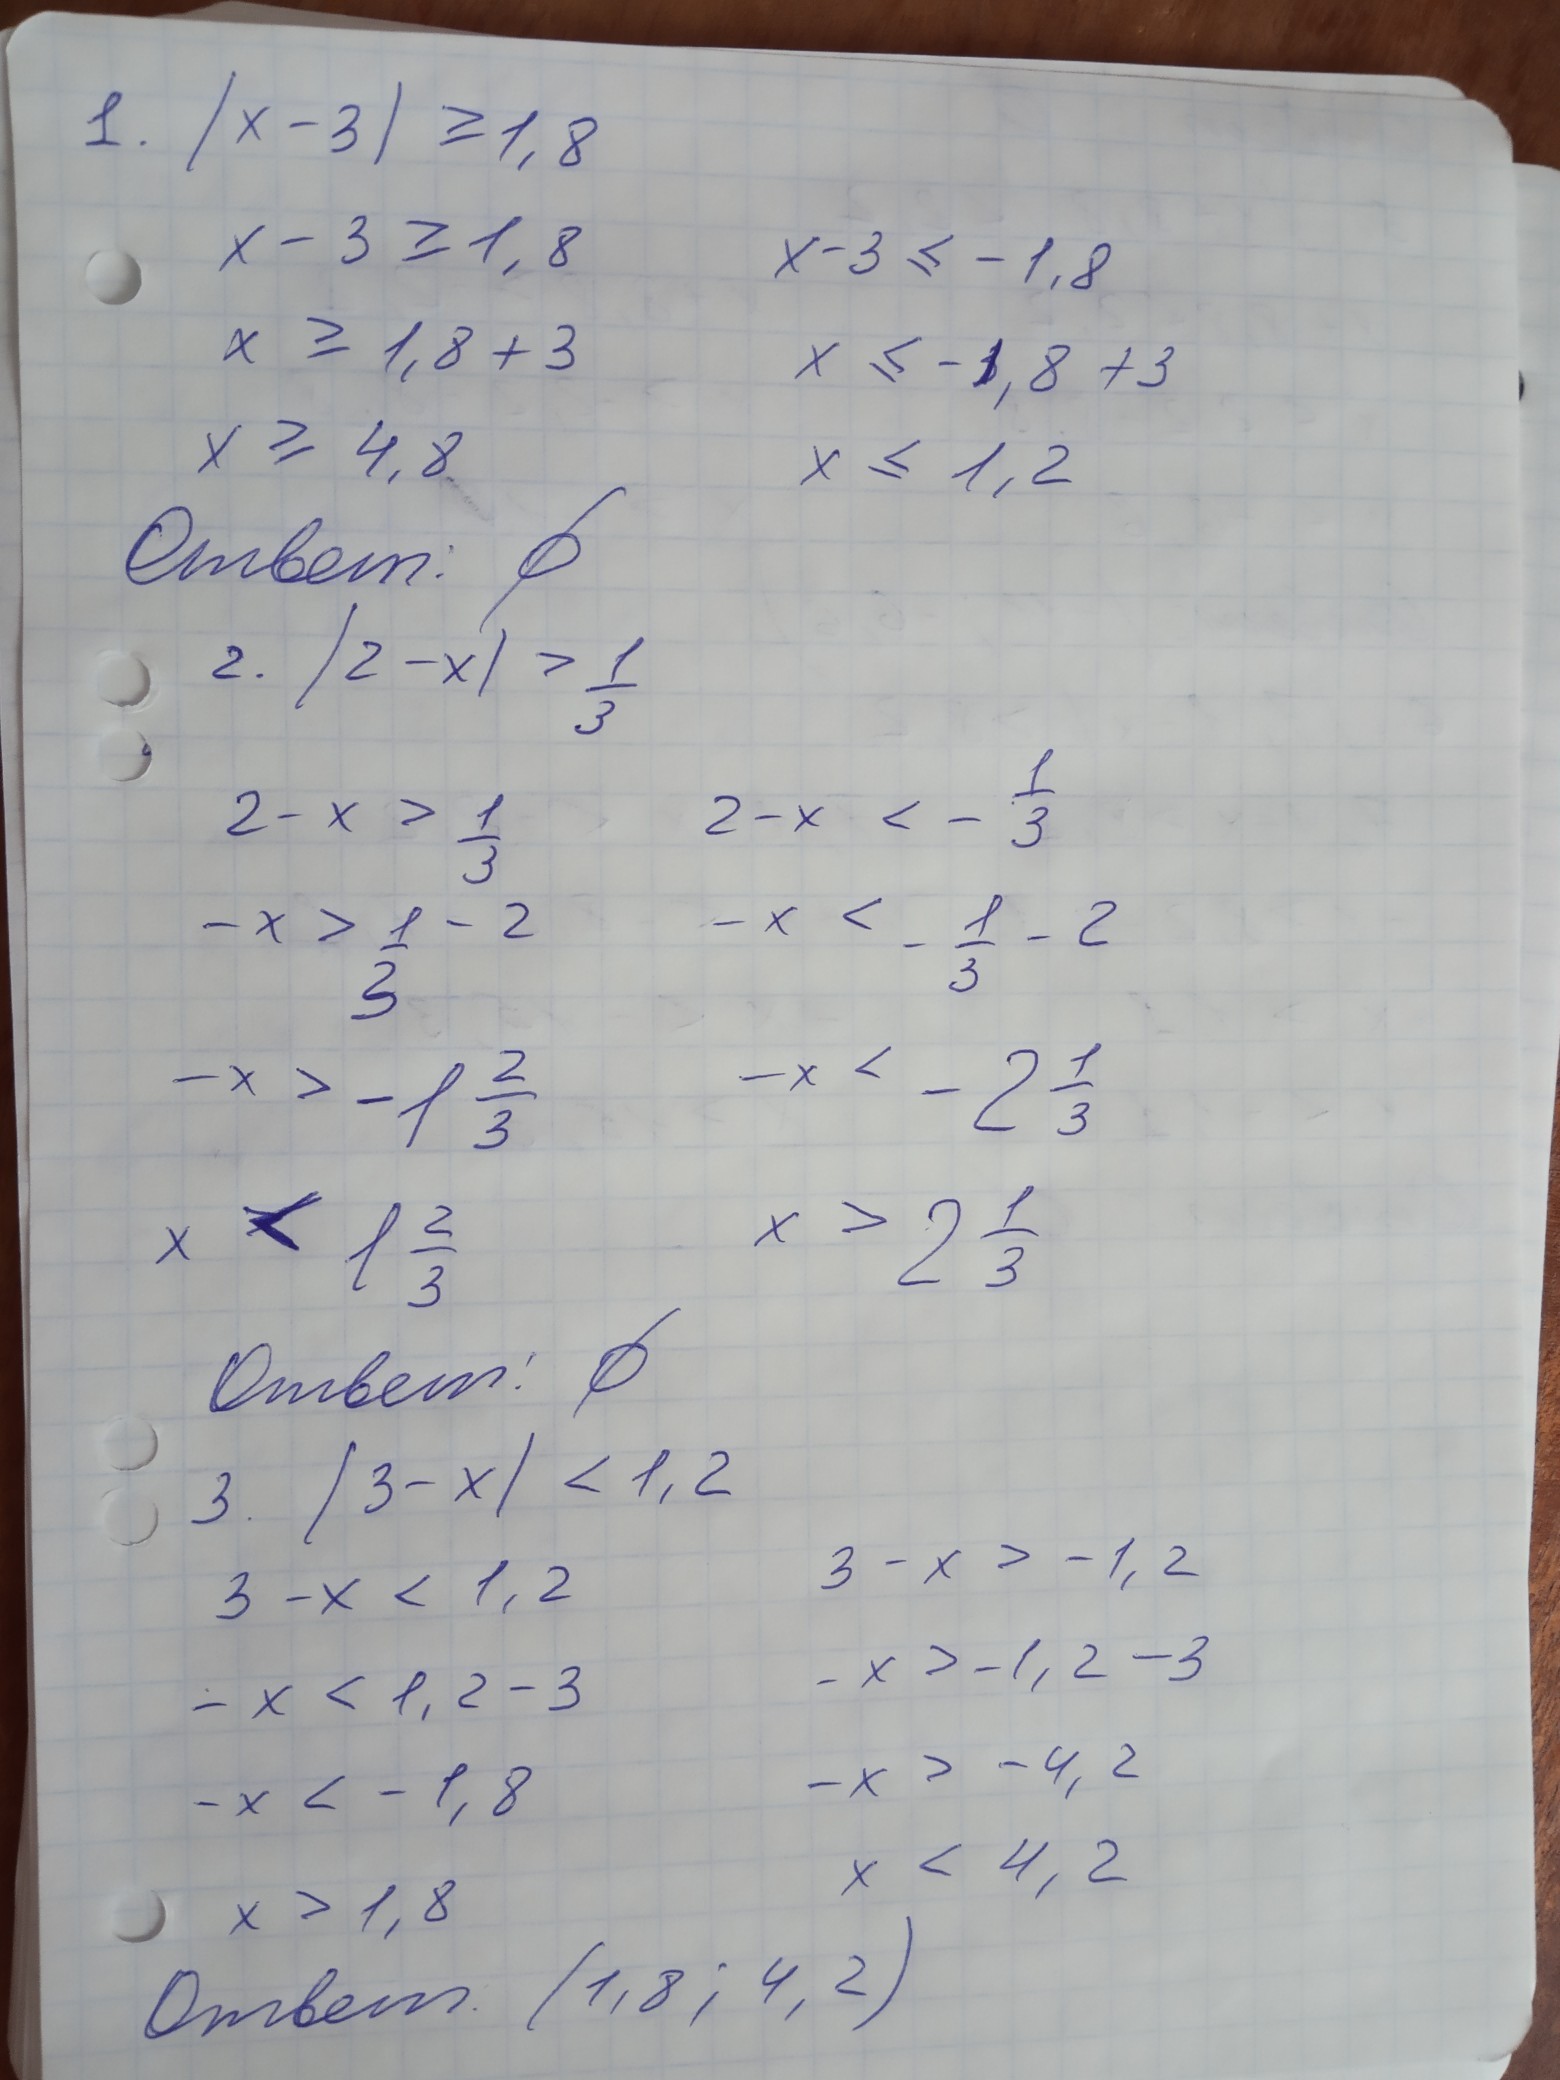 1. |x-3| ≥ 1,8
x-3 ≥ 1,8 x-3 ≤ -1,8
x ≥ 1,8+3 x ≤ -1,8+3
x ≥ 4,8 x ≤ 1,2
Ответ: ∅
2. |2-x| > 1/3
2-x > 1/3 2-x < -1/3
-x > 1/3 - 2 -x < -1/3 - 2
-x > -1 2/3 -x < -2 1/3
x < 1 2/3 x > 2 1/3
Ответ: ∅
3. |3-x| < 1,2
3-x < 1,2 3-x > -1,2
-x < 1,2-3 -x > -1,2-3
-x < -1,8 -x > -4,2
x > 1,8 x < 4,2
Ответ. (1,8; 4,2)